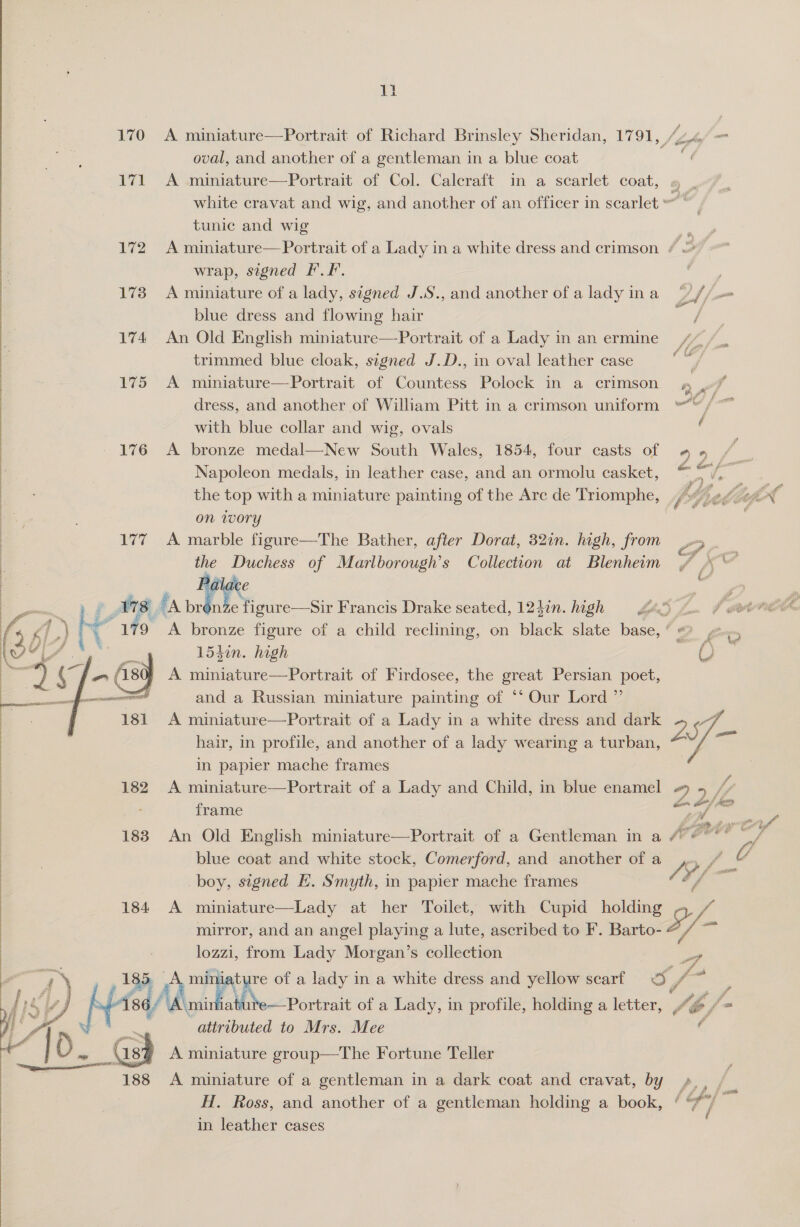 11
170 A miniature—Portrait of Richard Brinsley Sheridan, 1791,
oval, and another of a gentleman in a blue coat
171 A miniature—Portrait of Col. Calcraft in a scarlet coat,
white cravat and wig, and another of an officer in scarlet
tunic and wig
172 A miniature—Portrait of a Lady in a white dress and crimson
wrap, signed F.F.
173 A miniature of a lady, signed J.S., and another of a lady in a
blue dress and flowing hair
174 An Old English miniature—Portrait of a Lady in an ermine
trimmed blue cloak, signed J.D., in oval leather case
175 A miniature—Portrait of Countess Polock in a crimson
dress, and another of William Pitt in a crimson uniform
with blue collar and wig, ovals
176 A bronze medal—New South Wales, 1854, four casts of
Napoleon medals, in leather case, and an ormolu casket,
the top with a miniature painting of the Arc de Triomphe,
on ivory
177 A marble figure—The Bather, after Dorat, 32in. high, from
the Duchess of Marlborough's Collection at Blenheim
Palace
178 A bronze figure—Sir Francis Drake seated, 12½in. high
179 A bronze figure of a child reclining, on black slate base,
15½in. high
180 A miniature—Portrait of Firdosee, the great Persian poet,
and a Russian miniature painting of "Our Lord"
181 A miniature—Portrait of a Lady in a white dress and dark
hair, in profile, and another of a lady wearing a turban,
in papier mache frames
182 A miniature—Portrait of a Lady and Child, in blue enamel
frame
183 An Old English miniature—Portrait of a Gentleman in a
blue coat and white stock, Comerford, and another of a
boy, signed E. Smyth, in papier mache frames
184 A miniature—Lady at her Toilet, with Cupid holding
mirror, and an angel playing a lute, ascribed to F. Barto-
lozzi, from Lady Morgan's collection
185 A miniature of a lady in a white dress and yellow scarf
186 A miniature—Portrait of a Lady, in profile, holding a letter,
attributed to Mrs. Mee
187 A miniature group—The Fortune Teller
188 A miniature of a gentleman in a dark coat and cravat, by
H. Ross, and another of a gentleman holding a book,
in leather cases